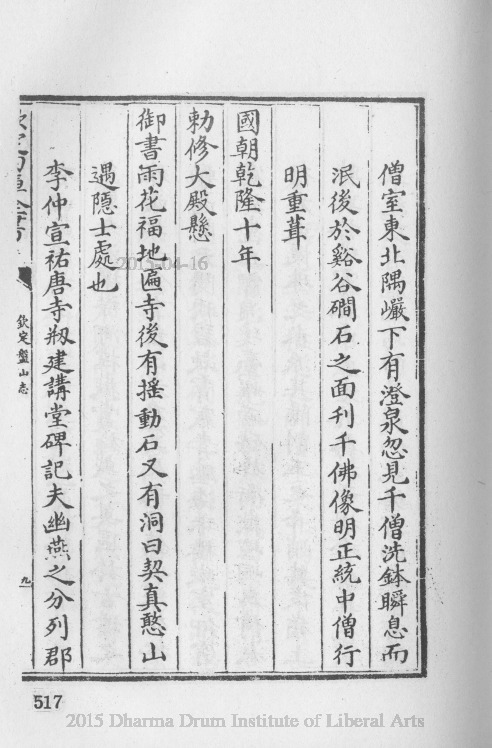 僧室東北隅巖下有澄泉忽見千僧洗鉢瞬息而
泯後於谿谷磵石之面刊千佛像明正統中僧行
明重葺
國朝乾隆十年
勅修大殿懸
御書雨花福地匾寺後有揺動石又有洞曰契真憨山
遇隐士處也
李仲宣祐唐寺剏建講堂碑記夫幽燕之分列郡
欽定盤山志
九
517
2015-04-16
2015 Dharma Drum Institute of Liberal Arts